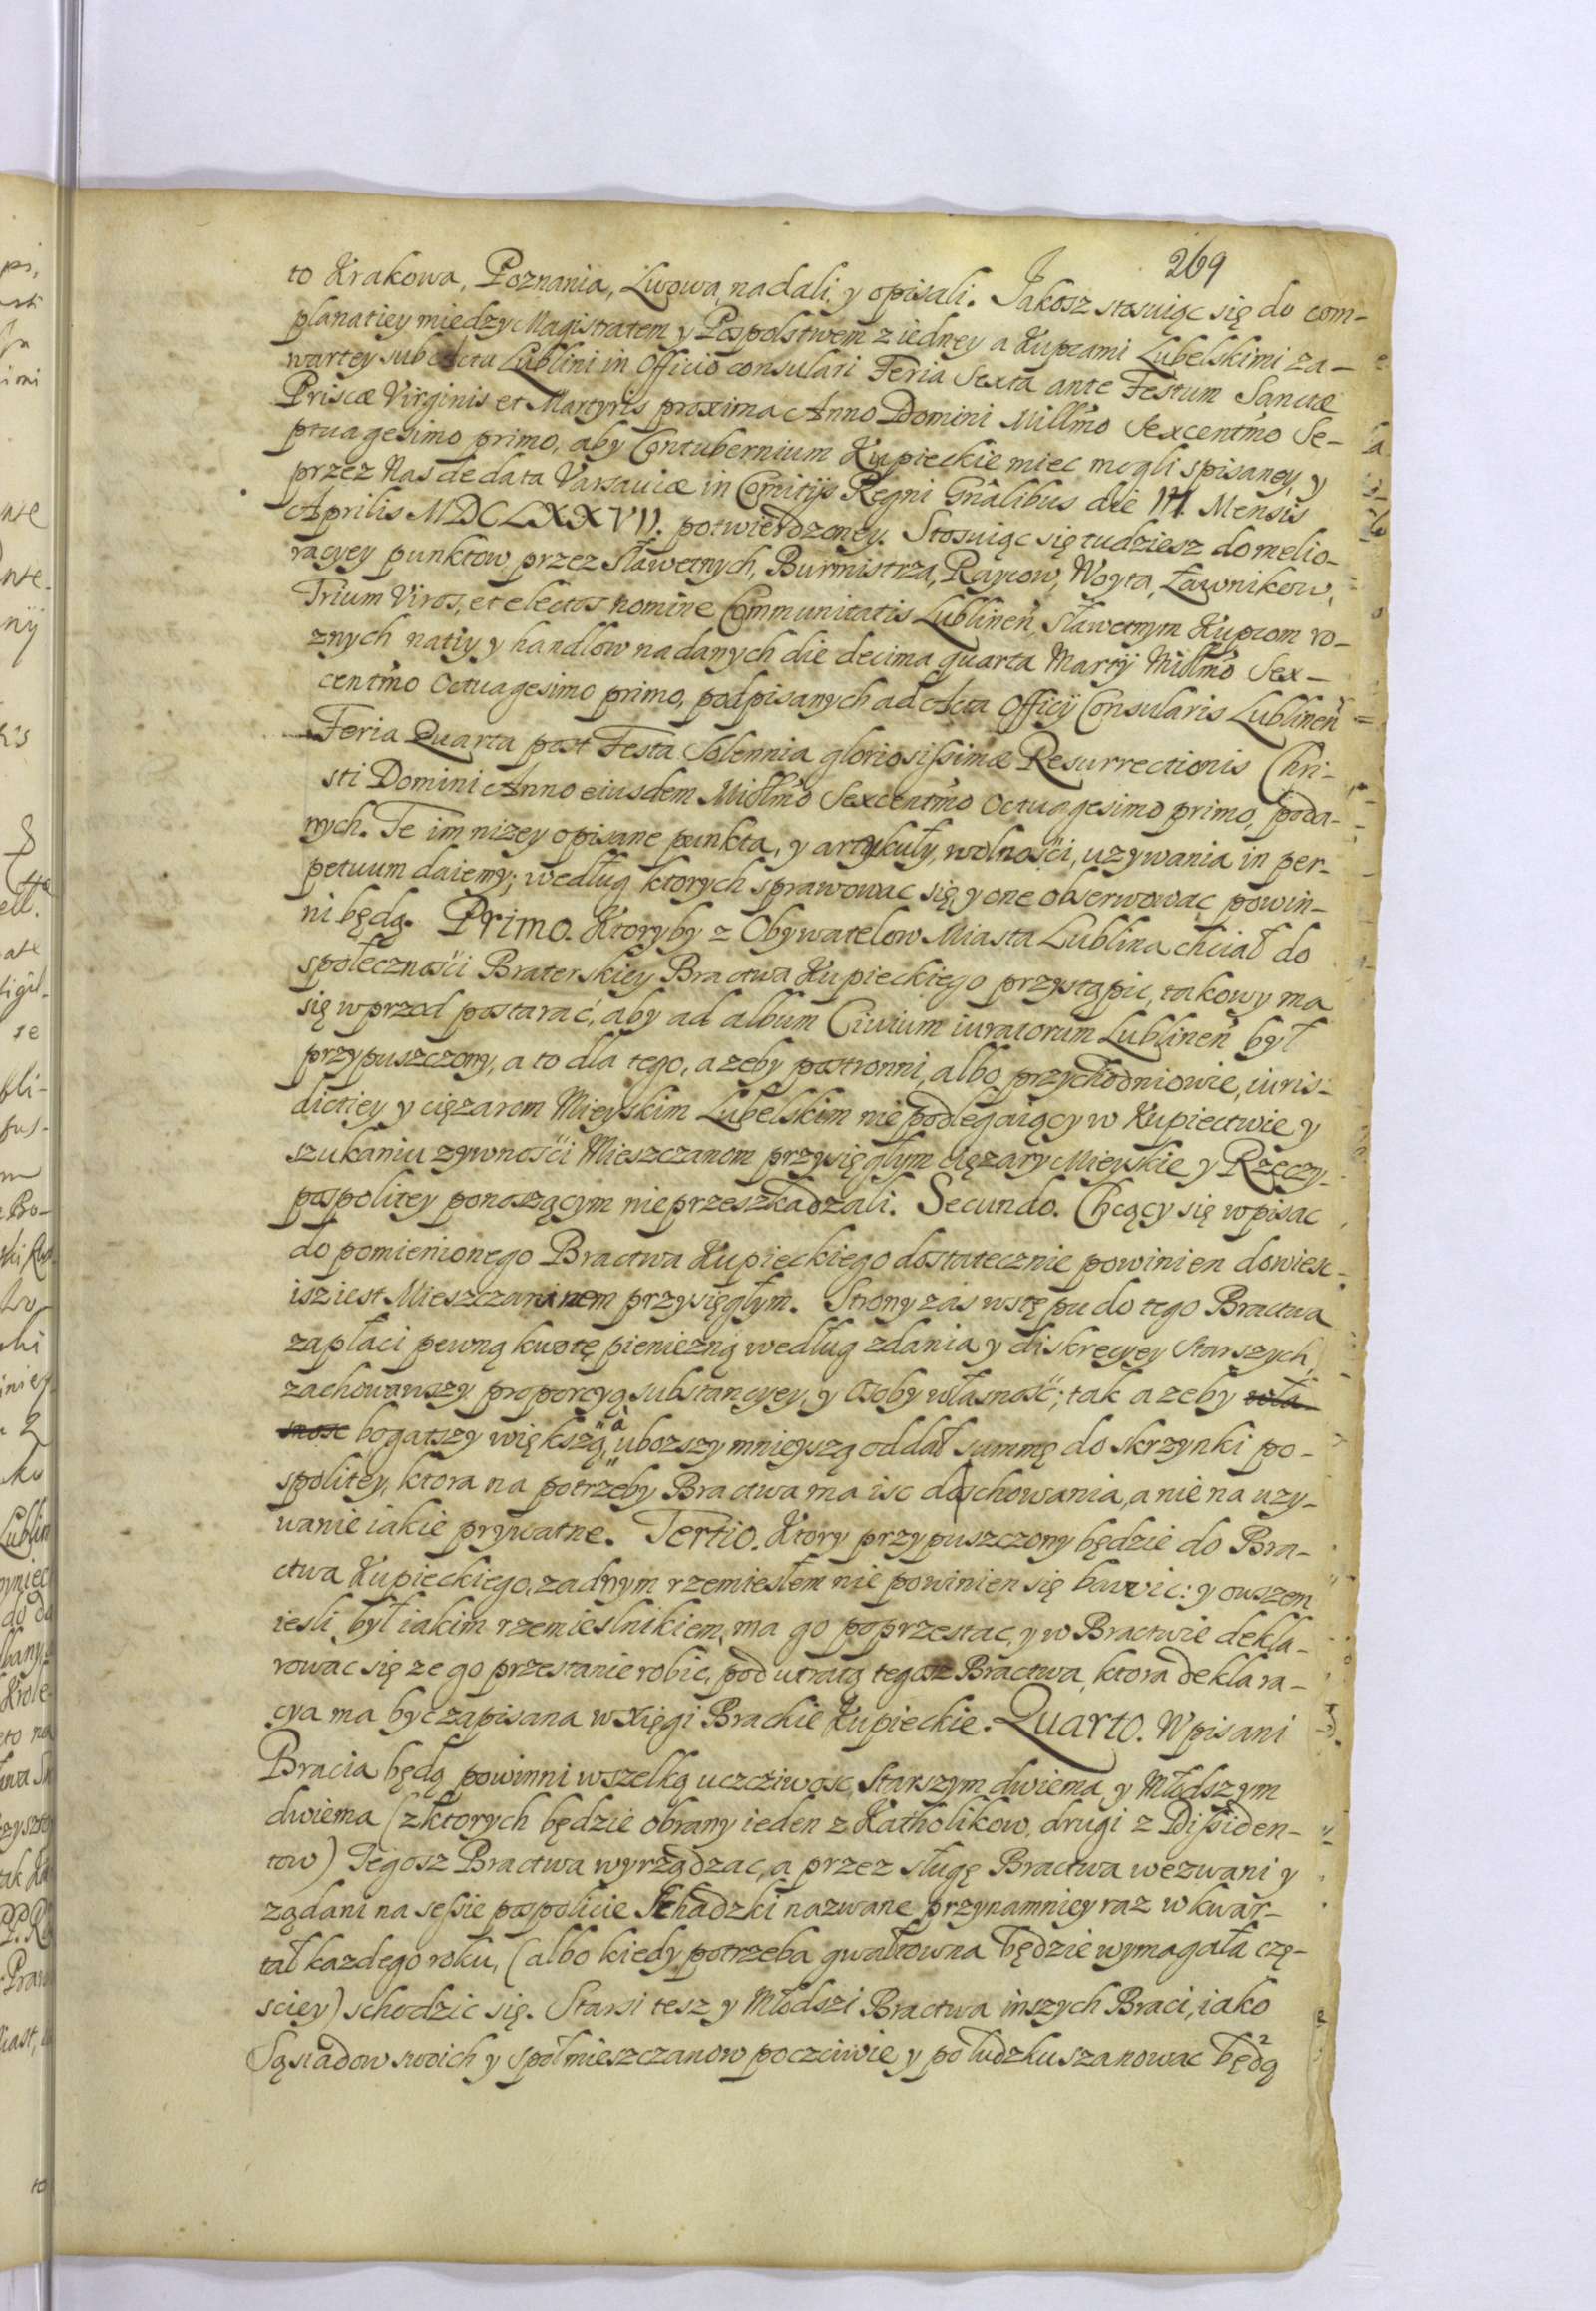 269
to Krakowa, Poznania, Lwowa, nadali, y opisali. Jakosz stosuiąc się do com-
planatiey między Magistratem y Pospolstwem z iedney a Kupcami Lubelskimi za-
wartey sub acta Lublini in Officio consulari Feria Sexta ante Festum Sanctæ
Priscæ Virginis et Martyris proxima Anno Domini Millmo Sexcentmo Se-
ptuagesimo primo, aby Contubernium Kupieckie miec mogli spisaney, y
przez Nas de data Varsaviæ in Comitijs Regni Gnâlibus die Mensis
Aprilis MDCLXXVII. potwierdzoney. Stosuiąc się tudziesz do melio-
racyey punktow przez Sławetnych, Burmistrza, Raycow, Woyta, Ławnikow,
Trium Viros, et electos nomine Communitatis Lublinen, Sławetnym Kupcom ro-
znych natiy y handlow nadanych die decima quarta Martij Millmo Sex-
centmo Octuagesimo primo, podpisanych ad Acta Officij Consularis Lublinen
Feria Quarta post Festa Solennia gloriosissimæ Resurrectionis Chri-
sti Domini Anno eiusdem Millmo Sexcentmo Octuagesimo primo, poda-
nych. Te im nizey opisane punkta, y artykuły, wolności, uzywania in per-
petuum daiemy; według ktorych sprawowac się, y one obserwowac powin-
ni będą. Primo. Ktoryby z Obywatelow Miasta Lublina chciał do
społeczności Braterskiey Bractwa Kupieckiego przystąpic, takowy ma
się wprzod postarać, aby ad album Civium iuratorum Lublinen był
przypuszczony, a to dla tego, azeby postronni, albo przychodniowie, iuris-
dictiey y ciężarom Mieyskim Lubelskim nie podlegaiący w Kupiectwie y
szukaniu zywności Mieszczanom przysięgłym ciężary Mieyskie y Rzeczy-
pospolitey ponoszącym nie przeszkadzali. Secundo. Chcący się wpisac
do pomienionego Bractwa Kupieckiego dostatecznie powinien dowiesc
isz iest Mieszczaninem przysięgłym. Strony zas wstępu do tego Bractwa
zapłaci pewną kwotę pieniezną według zdania y diskrecyey Starszych
zachowawszy proporcyą substancyey, y osoby własność; tak azeby wła-
snosc bogatszy większą, a ubozszy mnieyszą oddał summę do skrzynki po-
spolitey, ktora na potrzeby Bractwa ma isc do schowania, a nie na uzy-
wanie iakie prywatne. Tertio. Ktory przypuszczony będzie do Bra-
ctwa Kupieckiego, zadnym rzemiesłem nie powinien się bawic: y owszem
iesli był iakim rzemieslnikiem, ma go poprzestac, y w Bractwie dekla-
rowac się ze go przestanie robic, pod utratą tegosz Bractwa, ktora deklara-
cya ma być zapisana w xięgi Brackie Kupieckie. Quarto. Wpisani
Bracia będą powinni wszelką uczciwosc Starszym dwiema, y Młodszym
dwiema (z ktorych będzie obrany ieden z Katholikow, drugi z Dissiden-
tow) Tegosz Bractwa wyrządzac, a przez sługę Bractwa wezwani y
ządani na sessie pospolicie Schadzki nazwane przynamniey raz w kwar-
tał kazdego roku, (albo kiedy potrzeba gwałtowna będzie wymagała czę-
sciey) schodzic się. Starsi tesz y Młodszi Bractwa inszych Braci, iako
Sąsiadow swoich y społmieszczanow poczciwie y po ludzku szanowac będą